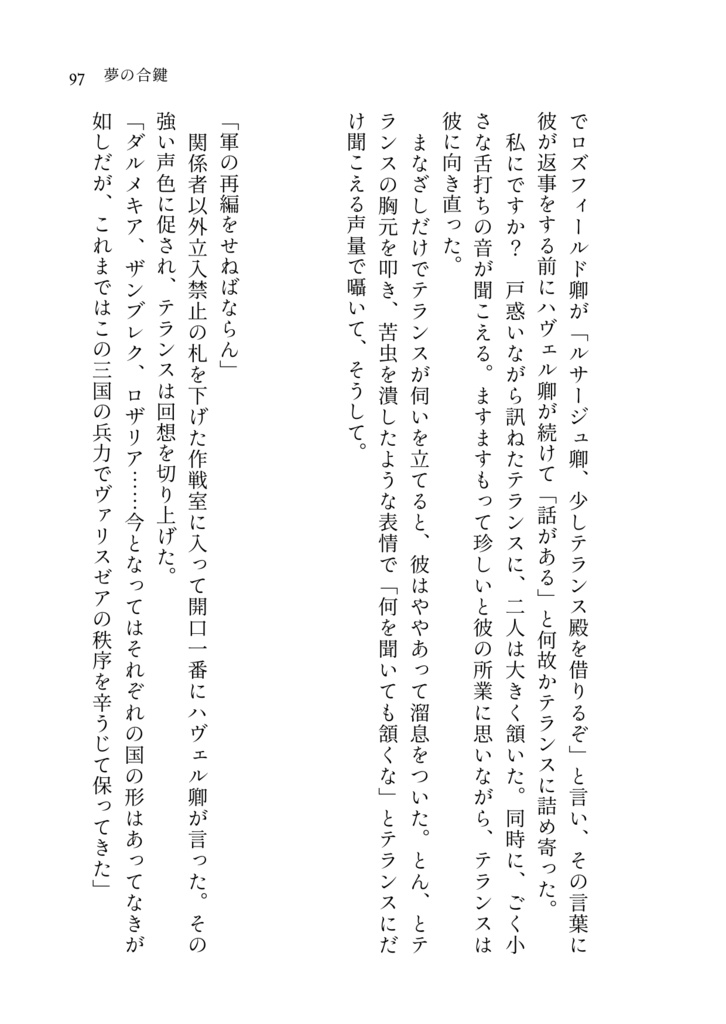 97 夢の合鍵
でロズフィールド卿が「ルサージュ卿、少しテランス殿を借りるぞ」と言い、その言葉に
彼が返事をする前にハヴェル卿が続けて「話がある」と何故かテランスに詰め寄った。
　私にですか？　戸惑いながら訊ねたテランスに、二人は大きく頷いた。同時に、ごく小
さな舌打ちの音が聞こえる。ますますもって珍しいと彼の所業に思いながら、テランスは
彼に向き直った。
　まなざしだけでテランスが伺いを立てると、彼はややあって溜息をついた。とん、とテ
ランスの胸元を叩き、苦虫を潰したような表情で「何を聞いても頷くな」とテランスにだ
け聞こえる声量で囁いて、そうして。
「軍の再編をせねばならん」
　関係者以外立入禁止の札を下げた作戦室に入って開口一番にハヴェル卿が言った。その
強い声色に促され、テランスは回想を切り上げた。
「ダルメキア、ザンブレク、ロザリア……今となってはそれぞれの国の形はあってなきが
如しだが、これまではこの三国の兵力でヴァリスゼアの秩序を辛うじて保ってきた」